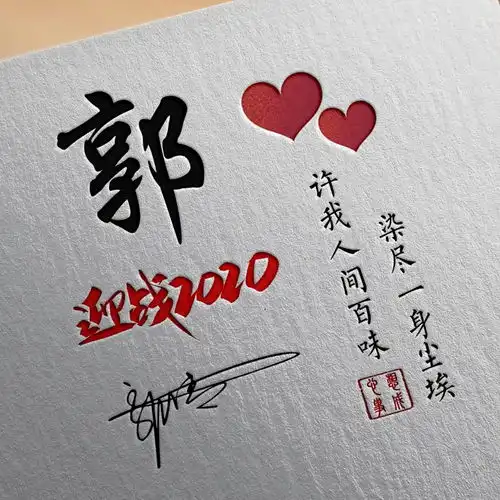 郭
迎战2020
染尽一身尘埃
许我人间百味
心想事成